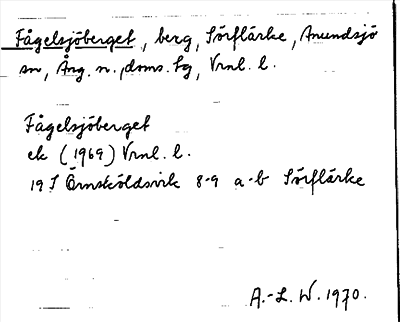 Fågelsjöberget, berg, Sörflärke, Anundsjö
sn, Ång. n., doms. tg, Vrnl. l.
Fågelsjöberget
ek (1969) Vrnl. l.
19 I Örnsköldsvik 8-9 a-b Sörflärke
A.-L. W. 1970.